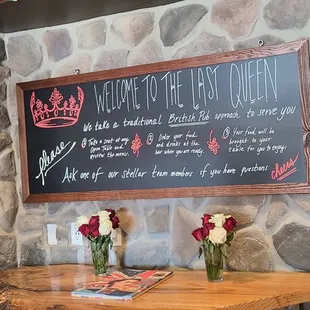 WELCOME TO THE LAST QUEEN
We take a traditional British Pub approach to serve you
please
① Take a seat at any Open Table and review the menu.
② Order your food and drinks at the bar when you are ready.
③ Your food will be brought to your table for you to enjoy.
Ask one of our stellar team members if you have questions.
cheers